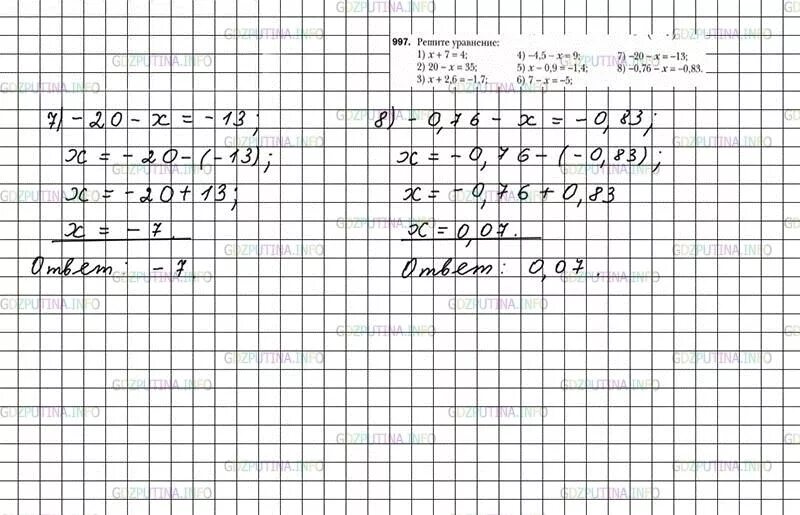 GDZPUTINA.INFO
997. Решите уравнение:
1) x + 7 = 4;
2) 20 − x = 35;
3) x + 2,6 = −1,7;
4) −4,5 − x = 9;
5) x − 0,9 = −1,4;
6) 7 − x = −5;
7) −20 − x = −13;
8) −0,76 − x = −0,83.
7) −20 − x = −13;
x = −20 − (−13);
x = −20 + 13;
x = −7.
Ответ: −7
8) −0,76 − x = −0,83;
x = −0,76 − (−0,83);
x = −0,76 + 0,83
x = 0,07.
Ответ: 0,07.